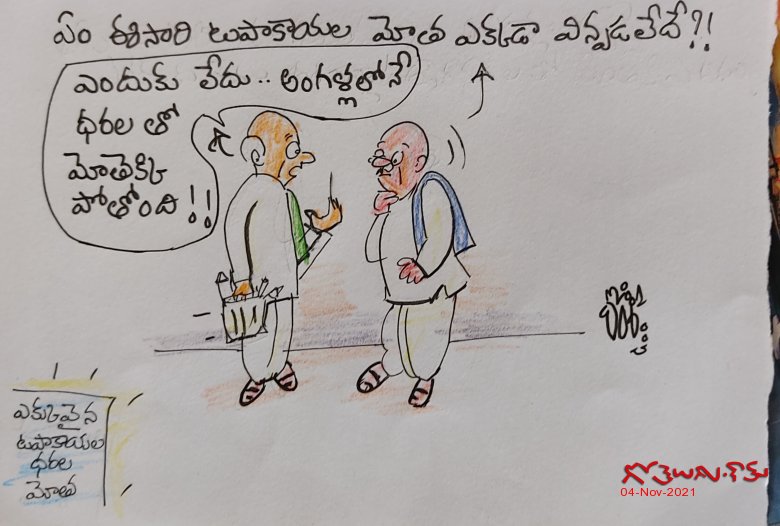 ఏం ఈసారి టపాకాయల మోత ఎక్కడా వినపడలేదే?!
ఎందుకు లేదు.. అంగళ్లలోనే
ధరల తో
మోతెక్కి
పోతోంది!!
ఎక్కువైన
టపాకాయల
ధరల
మోత
గోత్తెలుగు.కామ్
04-Nov-2021